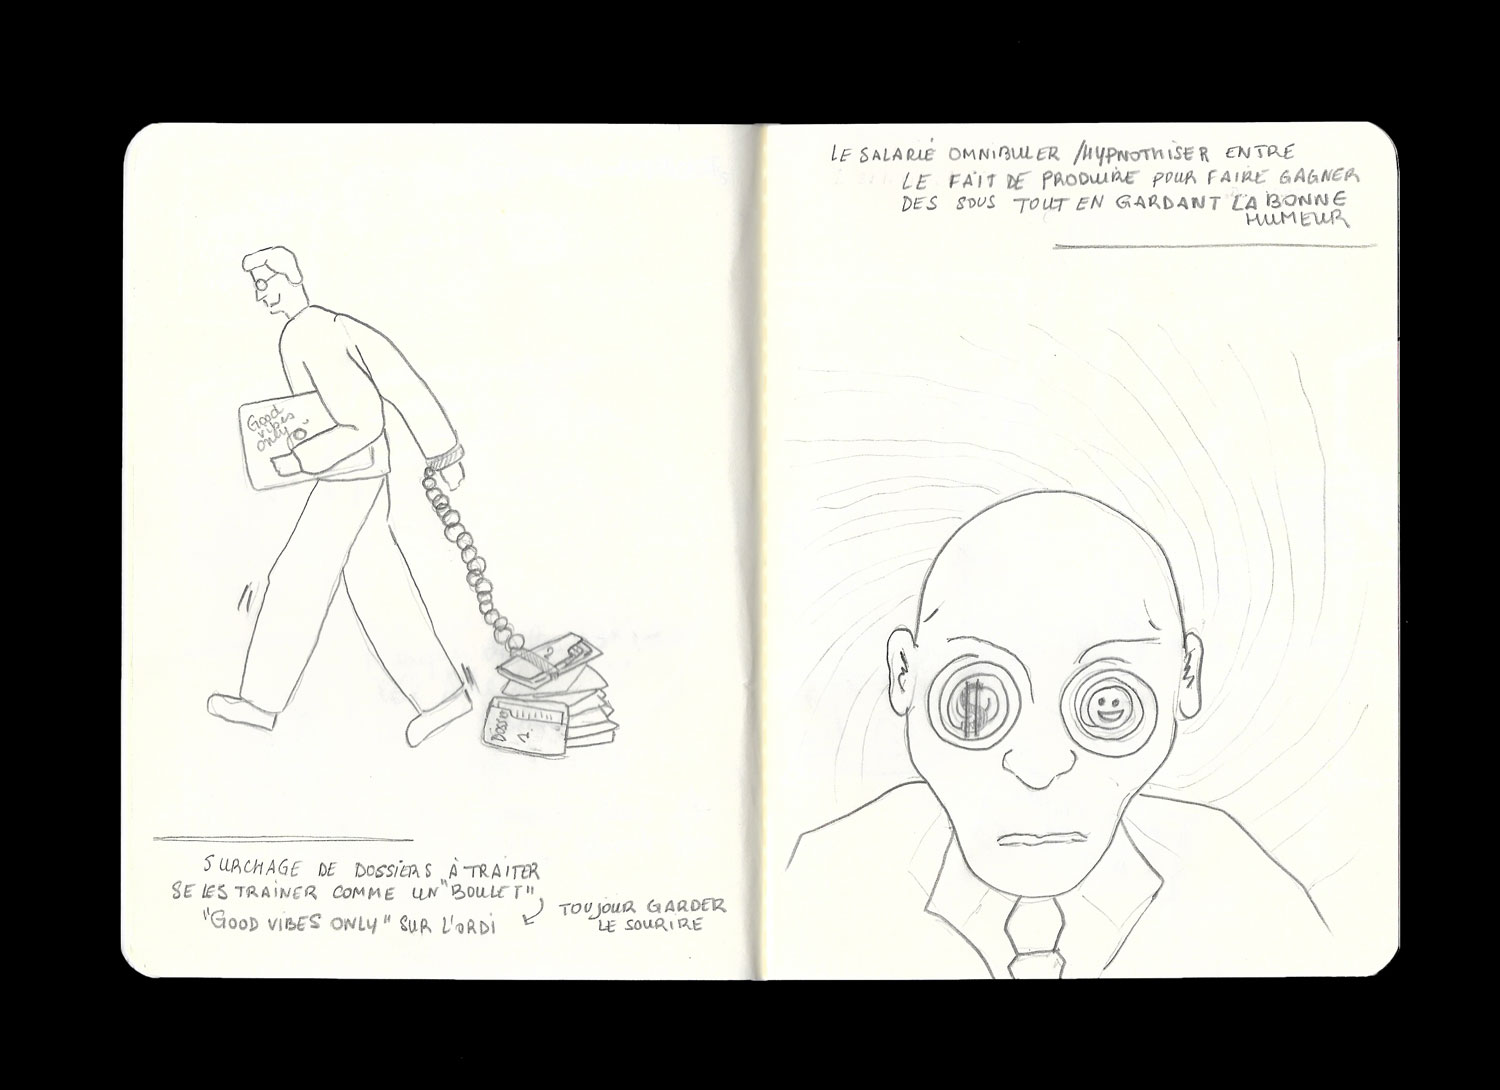 Good
vibes
only
Dossier
1.
2
$
SURCHAGE DE DOSSIERS À TRAITER
SE LES TRAINER COMME UN "BOULET"
"GOOD VIBES ONLY" SUR L'ORDI
TOUJOUR GARDER
LE SOURIRE
LE SALARIÉ OMNIBULER /HYPNOTHISER ENTRE
LE FAIT DE PRODUIRE POUR FAIRE GAGNER
DES SOUS TOUT EN GARDANT LA BONNE
HUMEUR